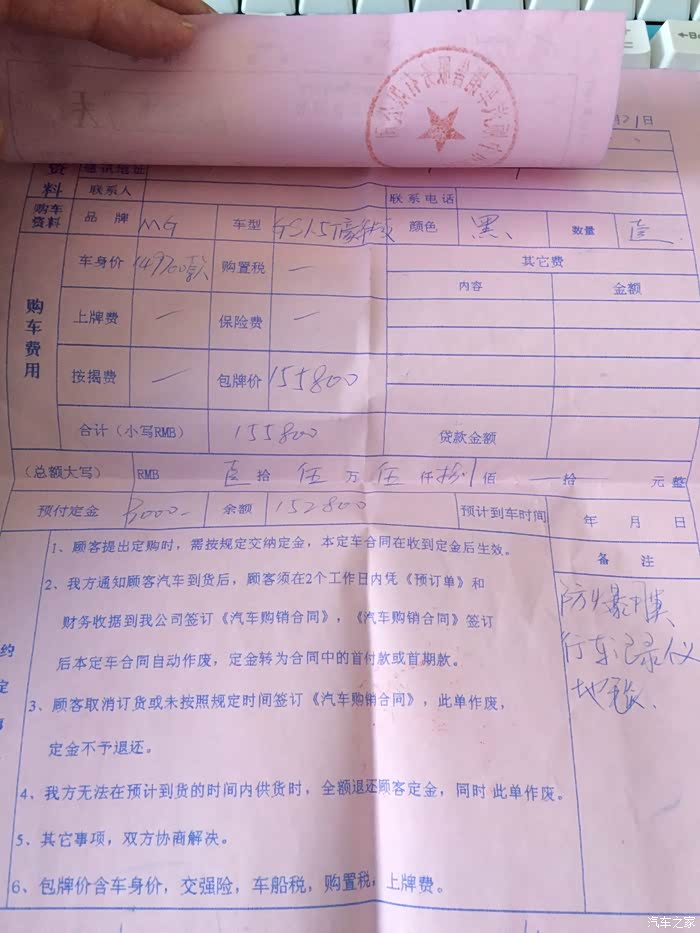 21日
资
料
通讯地址
联系人 联系电话
购车资料 品牌 MG 车型 GS1.5T 颜色 黑 数量 壹
购车费用
车身价 149700 购置税 — 其它费
内容 金额
上牌费 — 保险费 —
按揭费 — 包牌价 155800
合计（小写RMB） 155800 贷款金额
（总额大写） RMB 壹 拾 伍 万 伍 仟 捌 佰 — 拾 元 整
预付定金 3000- 余额 152800 预计到车时间 年 月 日
1、顾客提出定购时，需按规定交纳定金，本定车合同在收到定金后生效。
备 注
2、我方通知顾客汽车到货后，顾客须在2个工作日内凭《预订单》和
财务收据到我公司签订《汽车购销合同》，《汽车购销合同》签订
后本定车合同自动作废，定金转为合同中的首付款或首期款。
3、顾客取消订货或未按照规定时间签订《汽车购销合同》，此单作废，
定金不予退还。
4、我方无法在预计到货的时间内供货时，全额退还顾客定金，同时 此单作废。
5、其它事项，双方协商解决。
6、包牌价含车身价，交强险，车船税，购置税，上牌费。
约
定
事
防爆膜、
行车记录仪
地毯、
汽车之家